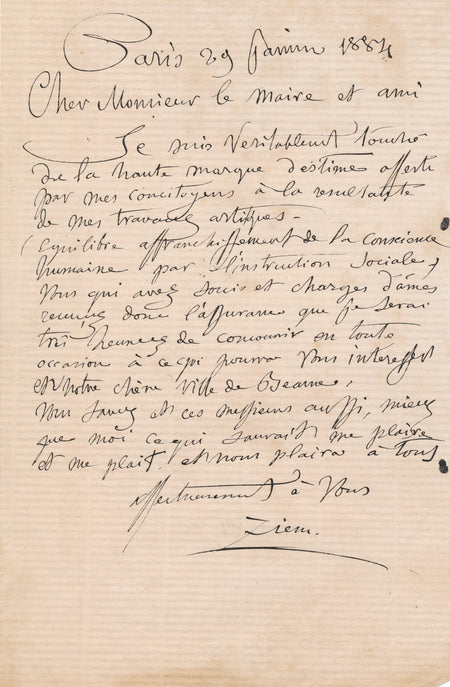 Paris 29 janvier 1884
Cher Monsieur le Maire et ami
Je suis veritablement touché
de la haute marque d'estime offerte
par mes concitoyens à la resultante
de mes travaux artistiques -
(Equilibre affranchissement de la Conscience
humaine par l'instruction Sociale)
Vous qui avez soucis et charges d'âmes
recevez donc l'assurance que je serai
très heureux de concourir en toute
occasion à ce qui pourra vous intéresser
et notre chère Ville de Beaune,
Vous savez et ces messieurs aussi, mieux
que moi ce qui saurait me plaire
et me plait. et nous plaira à tous
affectueusement à Vous
Ziem.